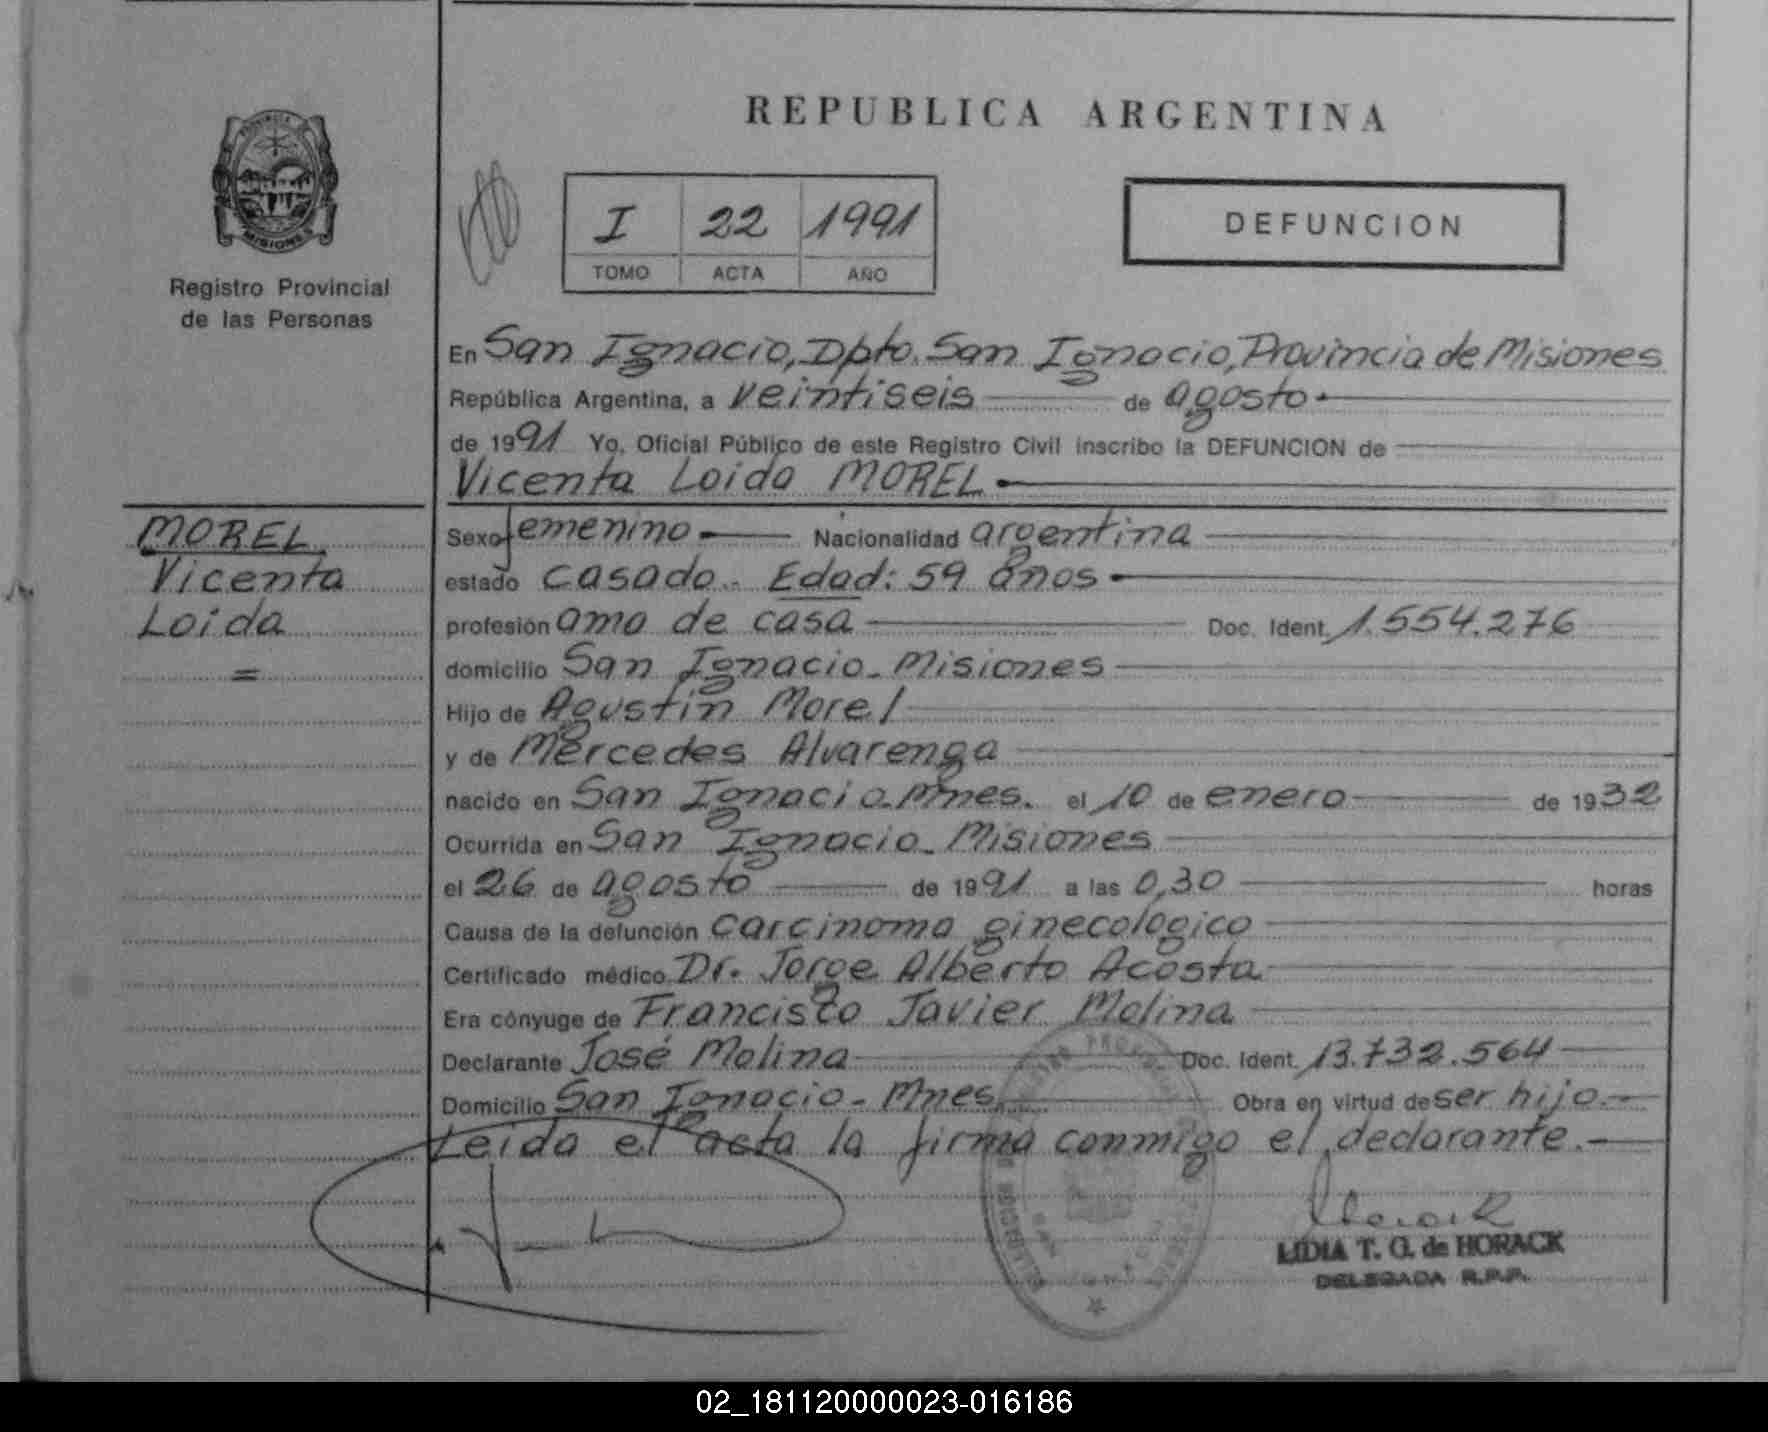 REPUBLICA ARGENTINA
PROVINCIA
MISIONES
Registro Provincial
de las Personas
I 22 1991
TOMO ACTA AÑO
DEFUNCION
En San Ignacio, Dpto. San Ignacio, Provincia de Misiones
República Argentina, a veintiseis de agosto
de 1991 Yo, Oficial Público de este Registro Civil inscribo la DEFUNCION de
Vicenta Loida MOREL
MOREL
Vicenta
Loida
=
Sexo femenino Nacionalidad argentina
estado casada.. Edad: 59 años
profesión ama de casa Doc. Ident. 1.554.276
domicilio San Ignacio - Misiones
Hijo de Agustín Morel
y de Mercedes Alvarenga
nacido en San Ignacio - Mnes. el 10 de enero de 1932
Ocurrida en San Ignacio - Misiones
el 26 de agosto de 1991 a las 0,30 horas
Causa de la defunción carcinoma ginecológico
Certificado médico Dr. Jorge Alberto Acosta
Era cónyuge de Francisco Javier Molina
Declarante José Molina Doc. Ident. 13.732.564
Domicilio San Ignacio - Mnes. Obra en virtud de ser hijo.-
Leida el acta la firma conmigo el declarante.-
LIDIA T. G. de HORACK
DELEGADA R.P.P.
02_181120000023-016186